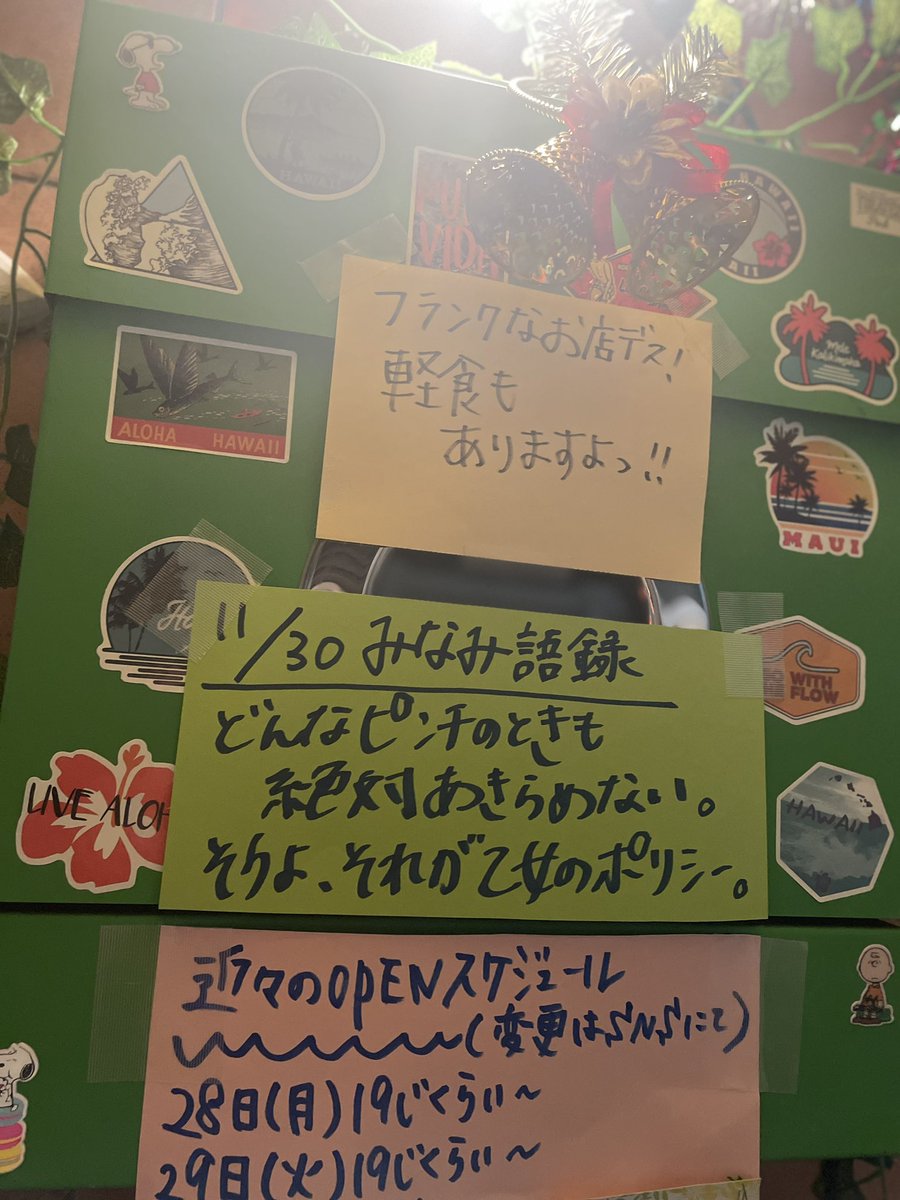 HAWAII
PURA
VIDA
HAWAII
Mele
Kalikimaka
フランクなお店デス!
軽食も
ありますよっ!!
ALOHA HAWAII
MAUI
11/30 みなみ語録
どんなピンチのときも
絶対あきらめない。
そうよ、それが乙女のポリシー。
WITH
FLOW
LIVE ALOH
HAWAII
近々のOPENスケジュール
(変更はSNSにて)
28日(月)19じくらい~
29日(火)19じくらい~